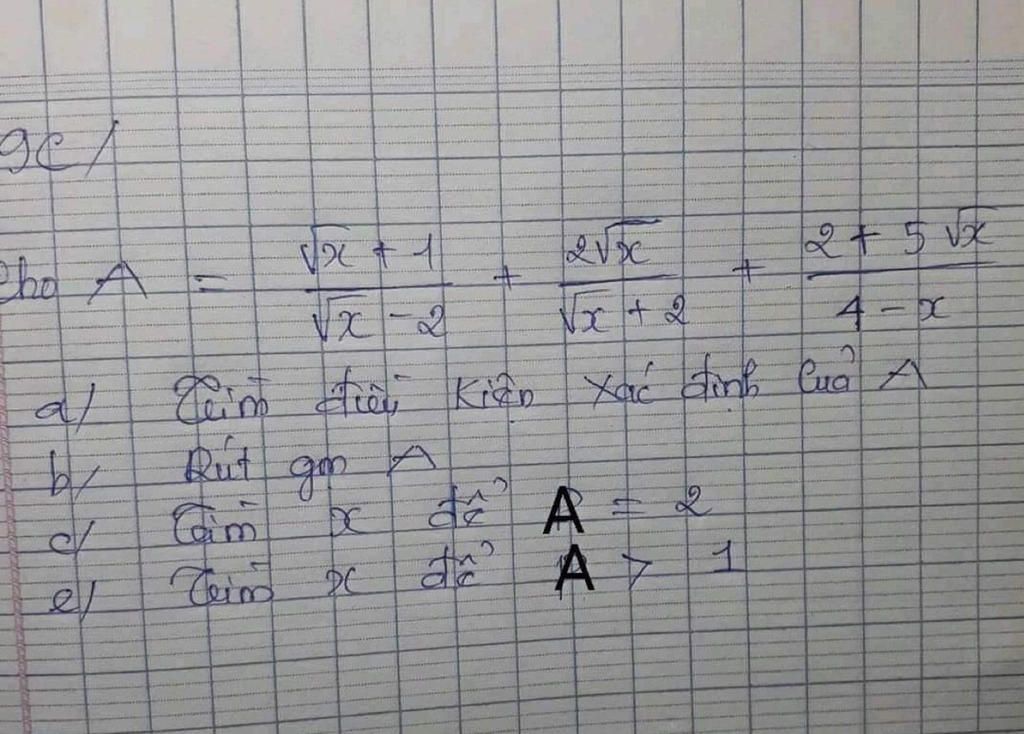 gc/
Cho A = (√x + 1)/(√x - 2) + (2√x)/(√x + 2) + (2 + 5√x)/(4 - x)
a/ Tìm điều kiện xác định của A
b/ Rút gọn A
c/ Tìm x để A = 2
e/ Tìm x để A > 1